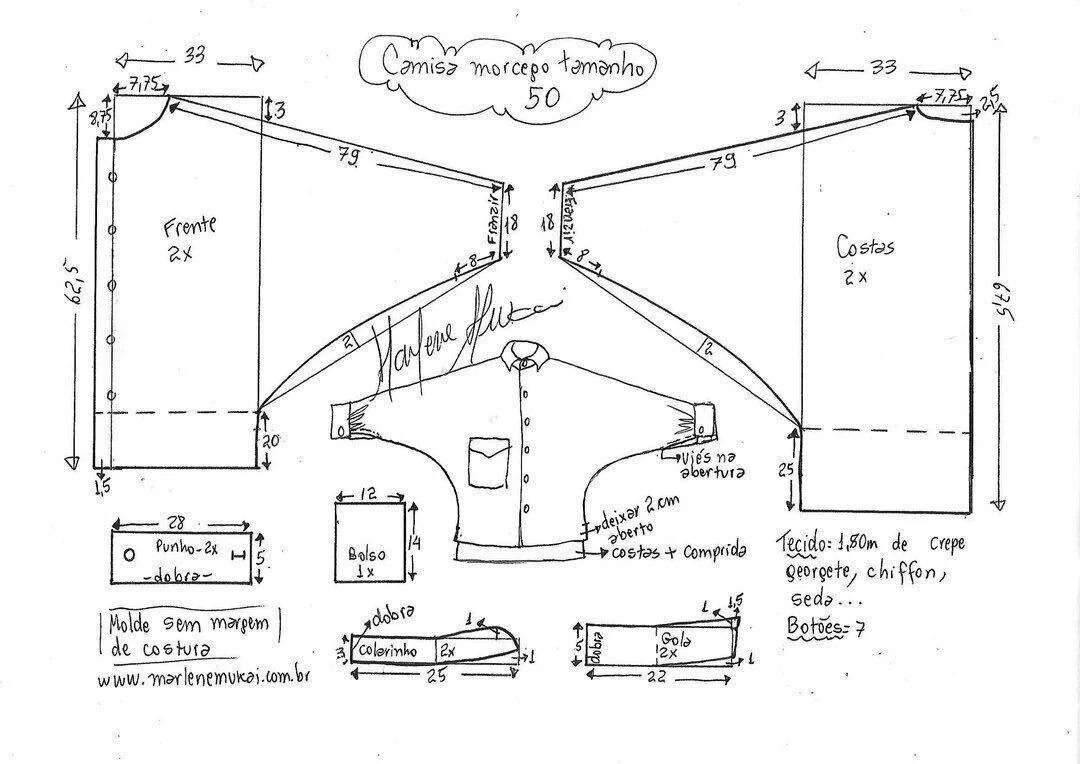 Camisa morcego tamanho
50
33
7,75
8,75
3
79
Frente
2x
62,5
Franzir
18
8
2
20
1,5
33
7,75
2,5
3
79
18
8
Costas
2x
67,5
2
25
Marlene Mukai
viés na
abertura
deixar 2 cm
aberto
costas + comprida
28
Punho-2x
-dobra-
5
12
14
Bolso
1x
Tecido: 1,80m de crepe
georgete, chiffon,
seda...
Botões= 7
Molde sem margem
de costura
www.marlenemukai.com.br
dobra
1
3
Colarinho
2x
1
25
1
1,5
5
dobra
Gola
2x
1
22